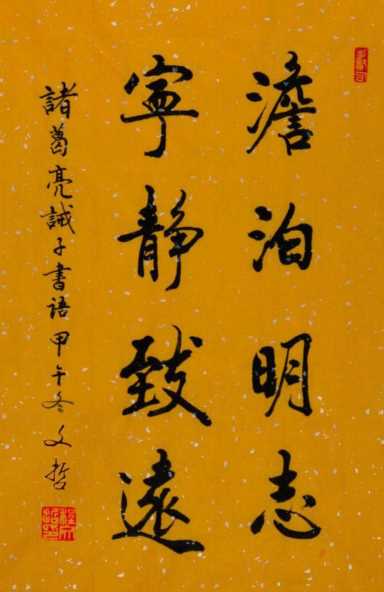 澹泊明志
寧静致遠
諸葛亮誡子書语甲午冬文哲